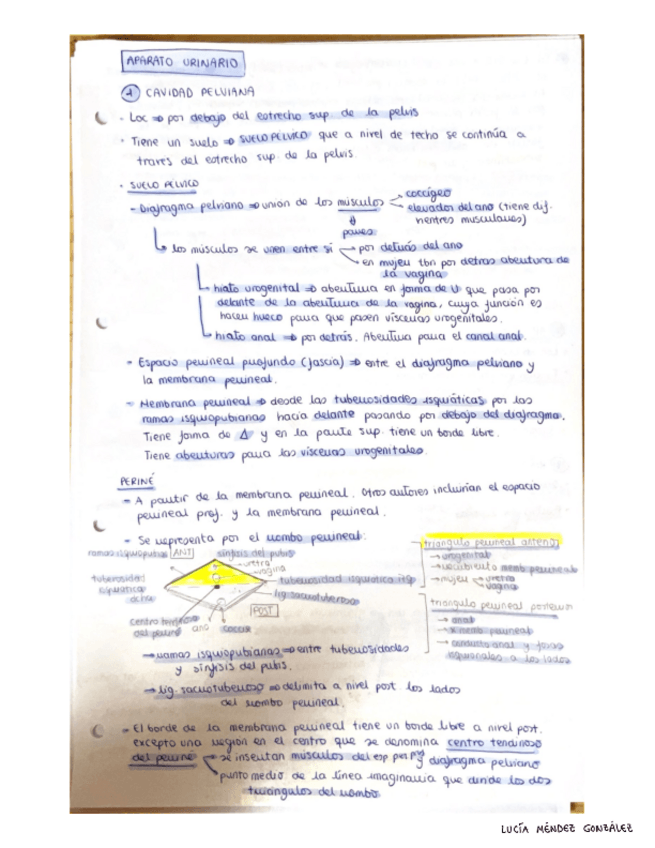 APARATO URINARIO
1 CAVIDAD PELVIANA
· Loc ⇒ por debajo del estrecho sup. de la pelvis
· Tiene un suelo ⇒ SUELO PÉLVICO que a nivel de techo se continúa a
través del estrecho sup. de la pelvis.
· SUELO PÉLVICO
- Diafragma pelviano ⇒ unión de los músculos
coccígeo
elevador del ano (tiene dif.
vientres musculares)
pares
los músculos se unen entre sí
por detrás del ano
en mujer tbn por detras abertura de
la vagina
hiato urogenital ⇒ abertura en forma de U que pasa por
delante de la abertura de la vagina, cuya función es
hacer hueco para que pasen vísceras urogenitales.
hiato anal ⇒ por detrás. Abertura para el canal anal.
- Espacio perineal profundo (fascia) ⇒ entre el diafragma pelviano y
la membrana perineal.
- Membrana perineal ⇒ desde las tuberosidades isquiáticas por las
ramas isquiopubianas hacia delante pasando por debajo del diafragma.
Tiene forma de Δ y en la parte sup. tiene un borde libre.
Tiene aberturas para las vísceras urogenitales.
PERINÉ
- A partir de la membrana perineal. Otros autores incluirían el espacio
perineal prof. y la membrana perineal.
- Se representa por el rombo perineal:
ramas isquiopubis
ANT
sínfisis del pubis
uretra
vagina
tuberosidad
isquiática
dcha
tuberosidad isquiática izq
lig. sacrotuberoso
POST
centro tendinoso
del periné
ano
coccix
triangulo perineal anterior
→ urogenital
→ recubierto memb perineal
→ mujer
uretra
vagina
triangulo perineal posterior
→ anal
memb perineal
→ conducto anal y fosas
isquioanales a los lados
→ ramas isquiopubianas ⇒ entre tuberosidades
y sínfisis del pubis.
→ lig. sacrotuberoso ⇒ delimita a nivel post. los lados
del rombo perineal.
- El borde de la membrana perineal tiene un borde libre a nivel post.
excepto una región en el centro que se denomina centro tendinoso
del periné
se insertan músculos del esp per pf y diafragma pelviano
punto medio de la línea imaginaria que divide los dos
triángulos del rombo
LUCÍA MÉNDEZ GONZÁLEZ